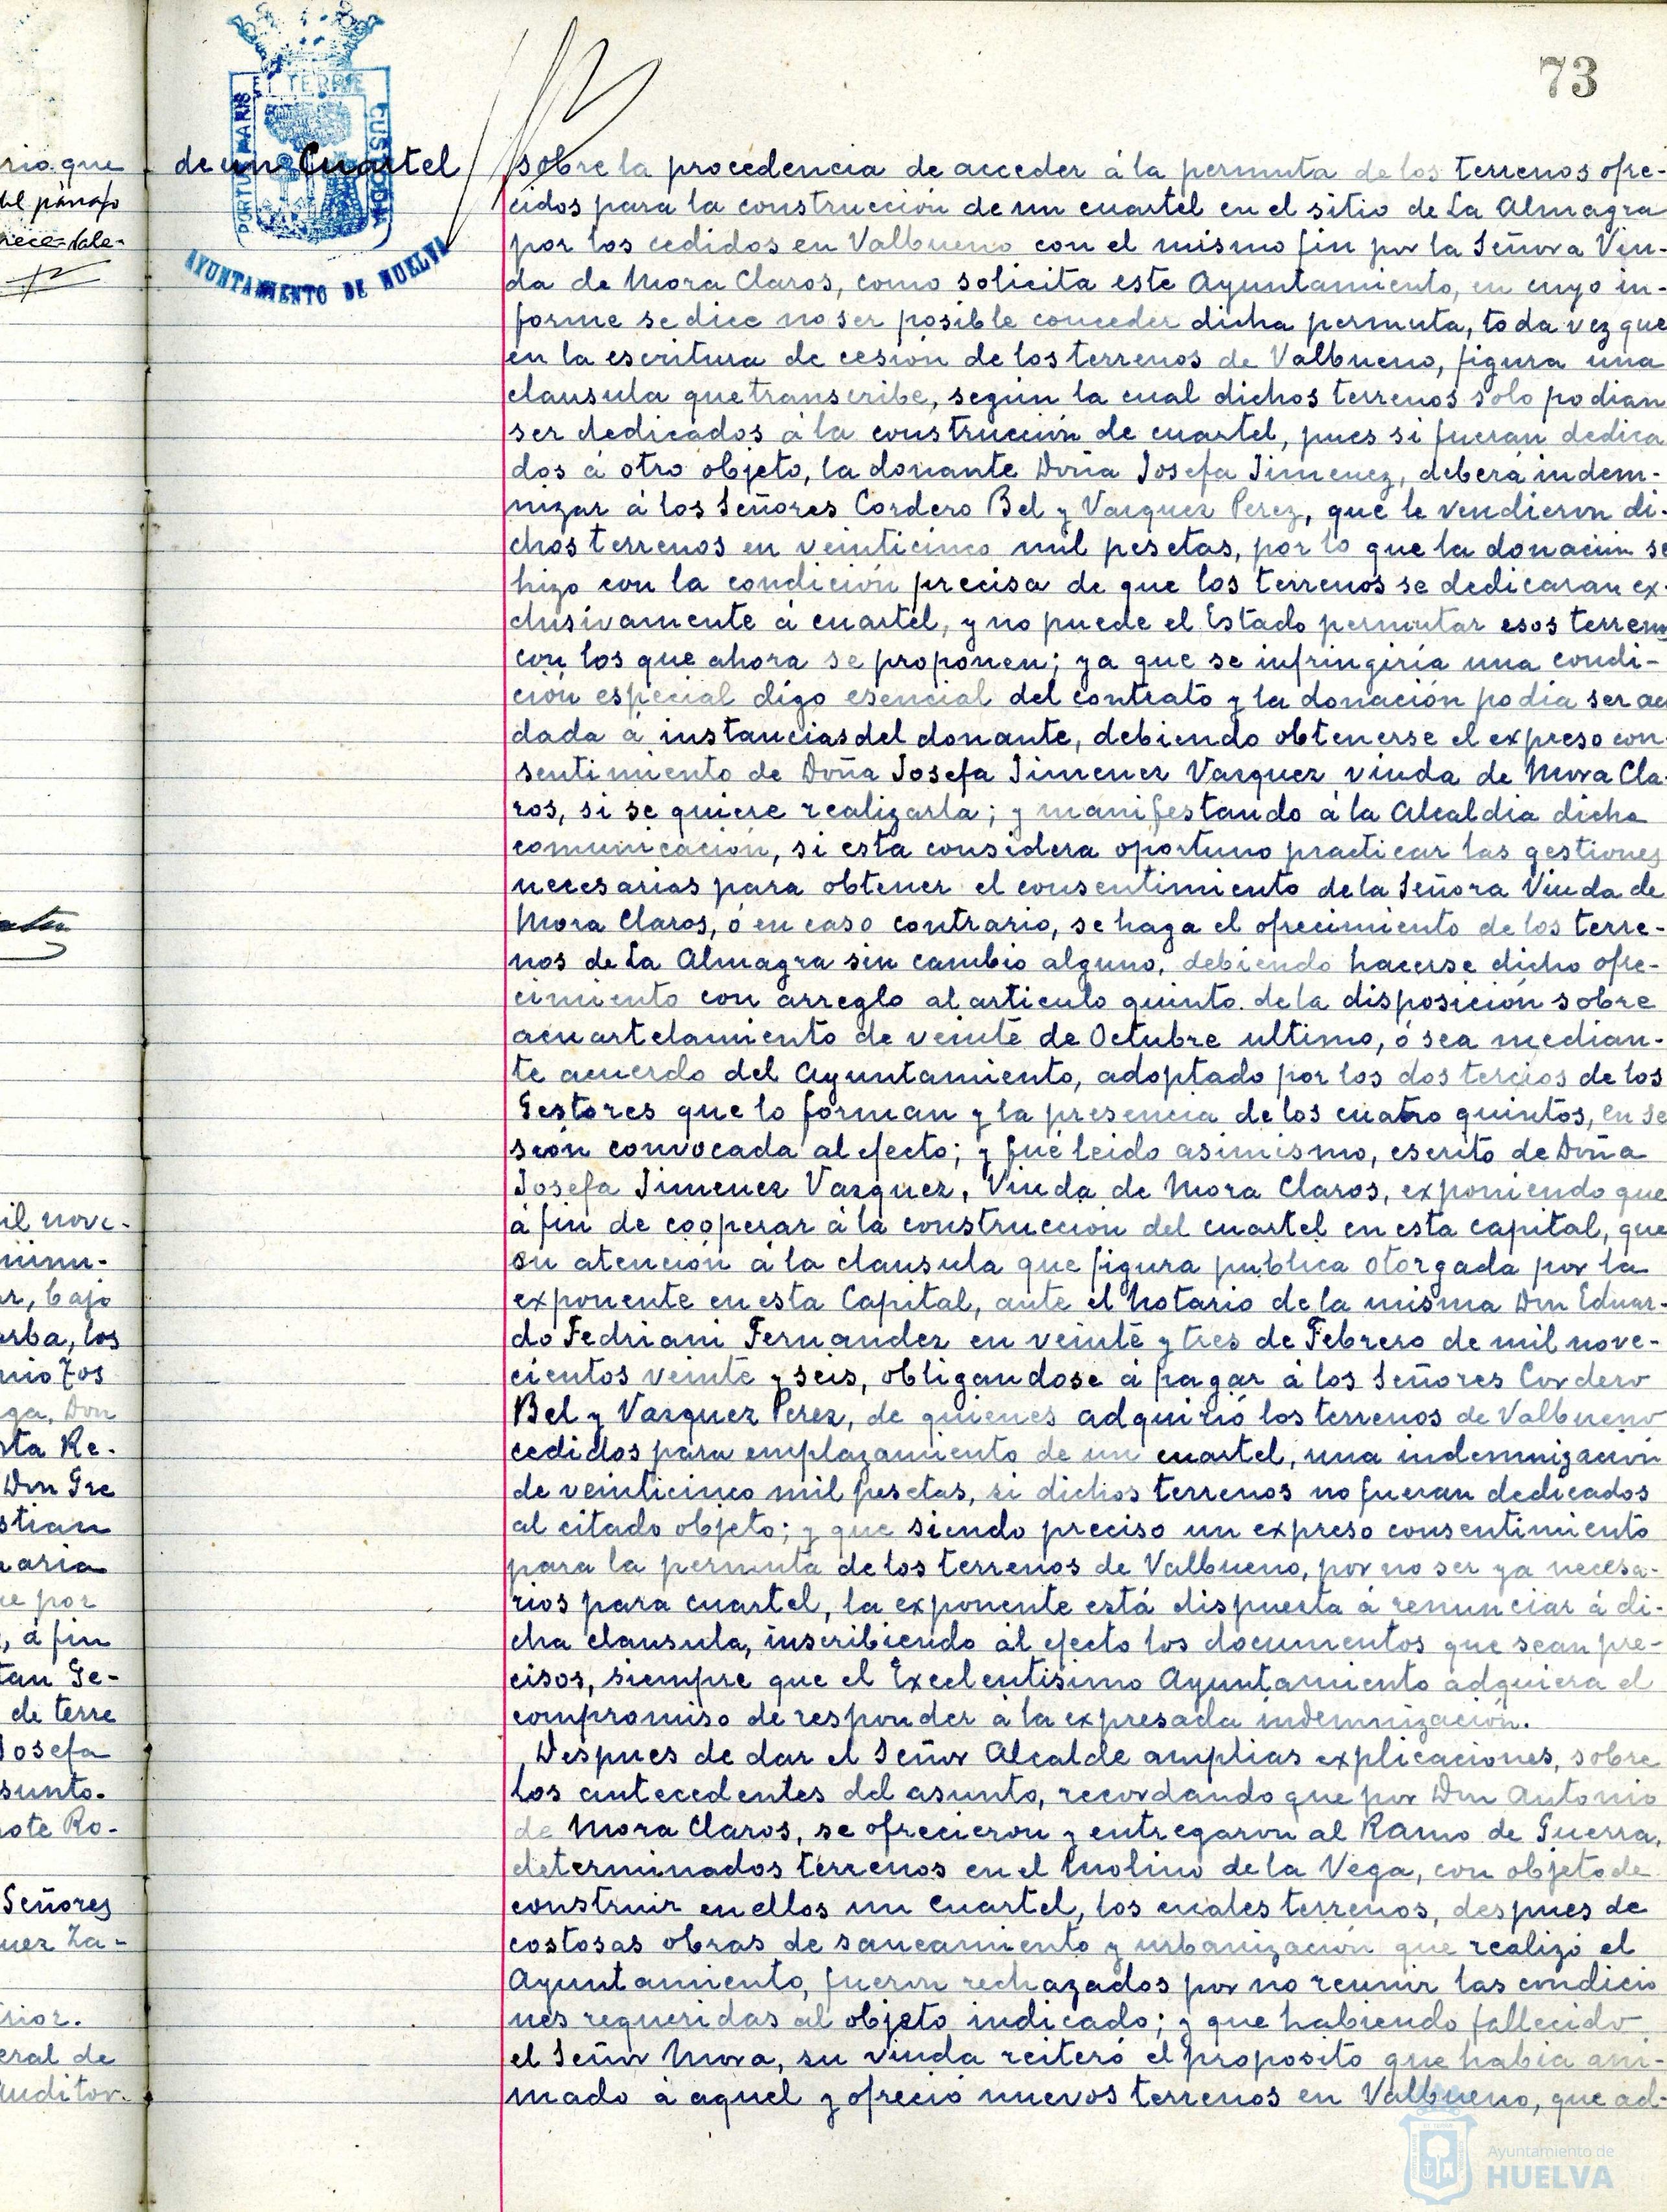 73
rio que
del párrafo
nece=Vale=
il nove-
minu-
ar, bajo
arba, los
nio Jos
ga, Don
sta Re-
Don Gre
stian
naria
ue por
, á fin
tan Ge-
de terre
Josefa
sunto.
ote Ro-
Señores
uez Za-
rior.
eral de
Auditor.
de un Cuartel
PORTUS MARIS
ET TERRE
CUSTODIA
AYUNTAMIENTO DE HUELVA
sobre la procedencia de acceder á la permuta de los terrenos ofre-
cidos para la construcción de un cuartel en el sitio de La Almagra
por los cedidos en Valbueno con el mismo fin por la Señora Viu-
da de Mora Claros, como solicita este Ayuntamiento, en cuyo in-
forme se dice no ser posible conceder dicha permuta, toda vez que
en la escritura de cesión de los terrenos de Valbueno, figura una
clausula que transcribe, según la cual dichos terrenos solo podian
ser dedicados á la construcción de cuartel, pues si fueran dedica
dos á otro objeto, la donante Doña Josefa Jimenez, deberá indem-
nizar á los Señores Cordero Bel y Vazquez Perez, que le vendieron di-
chos terrenos en veinticinco mil pesetas, por lo que la donación se
hizo con la condición precisa de que los terrenos se dedicaran ex-
clusivamente á cuartel, y no puede el Estado permutar esos terreno
con los que ahora se proponen; ya que se infringiría una condi-
ción especial digo esencial del contrato y la donación podia ser
dada á instancias del donante, debiendo obtenerse el expreso con-
sentimiento de Doña Josefa Jimenez Vazquez viuda de Mora Cla-
ros, si se quiere realizarla; y manifestando á la Alcaldia dicha
comunicación, si esta considera oportuno practicar las gestiones
necesarias para obtener el consentimiento de la Señora Viuda de
Mora Claros, ó en caso contrario, se haga el ofrecimiento de los terre-
nos de La Almagra sin cambio alguno, debiendo hacerse dicho ofre-
cimiento con arreglo al articulo quinto de la disposición sobre
acuartelamiento de veinte de Octubre ultimo, ó sea median-
te acuerdo del Ayuntamiento, adoptado por los dos tercios de los
Gestores que lo forman y la presencia de los cuatro quintos, en se
sión convocada al efecto; y fué leido asimismo, escrito de Doña
Josefa Jimenez Vazquez, Viuda de Mora Claros, exponiendo que
á fin de cooperar á la construcción del cuartel en esta capital, que
en atención á la clausula que figura publica otorgada por la
exponente en esta Capital, ante el Notario de la misma Don Eduar-
do Fedriani Fernandez en veinte y tres de Febrero de mil nove-
cientos veinte y seis, obligandose á pagar á los Señores Cordero
Bel y Vazquez Perez, de quienes adquirió los terrenos de Valbueno
cedidos para emplazamiento de un cuartel, una indemnización
de veinticinco mil pesetas, si dichos terrenos no fueran dedicados
al citado objeto; y que siendo preciso un expreso consentimiento
para la permuta de los terrenos de Valbueno, por no ser ya necesa-
rios para cuartel, la exponente está dispuesta á renunciar á di-
cha clausula, inscribiendo al efecto los documentos que sean pre-
cisos, siempre que el Excelentisimo Ayuntamiento adquiera el
compromiso de responder á la expresada indemnización.
Despues de dar el Señor Alcalde amplias explicaciones, sobre
los antecedentes del asunto, recordando que por Don Antonio
de Mora Claros, se ofrecieron y entregaron al Ramo de Guerra,
determinados terrenos en el Molino de la Vega, con objeto de
construir en ellos un cuartel, los cuales terrenos, despues de
costosas obras de saneamiento y urbanización que realizó el
Ayuntamiento, fueron rechazados por no reunir las condicio
nes requeridas al objeto indicado; y que habiendo fallecido
el Señor Mora, su viuda reiteró el proposito que habia ani-
mado á aquel y ofreció nuevos terrenos en Valbueno, que ad-
Ayuntamiento de
HUELVA